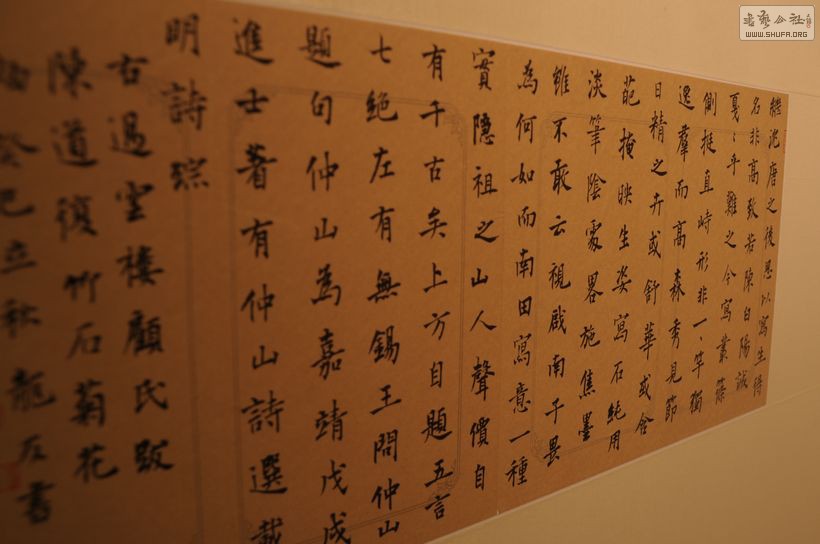 繼泥唐之後思以寫生得
名非高致若陳白陽誠
戛〻乎難之今寫叢篠
側挺直峙形非一竿獨
逸羣而高森秀見節
日精之卉或舒華或含
葩掩映生姿寫石純用
淡筆陰處畧施焦墨
雖不敢云視啟南子畏
為何如而南田寫意一種
實隱祖之山人聲價自
有千古矣上方自題五言
七絶左有無錫王問仲山
題句仲山為嘉靖戊戌
進士著有仲山詩選載
明詩綜
古過雲樓顧氏跋
陳道復竹石菊花
癸巳立秋龍友書
書藝公社
WWW.SHUFA.ORG